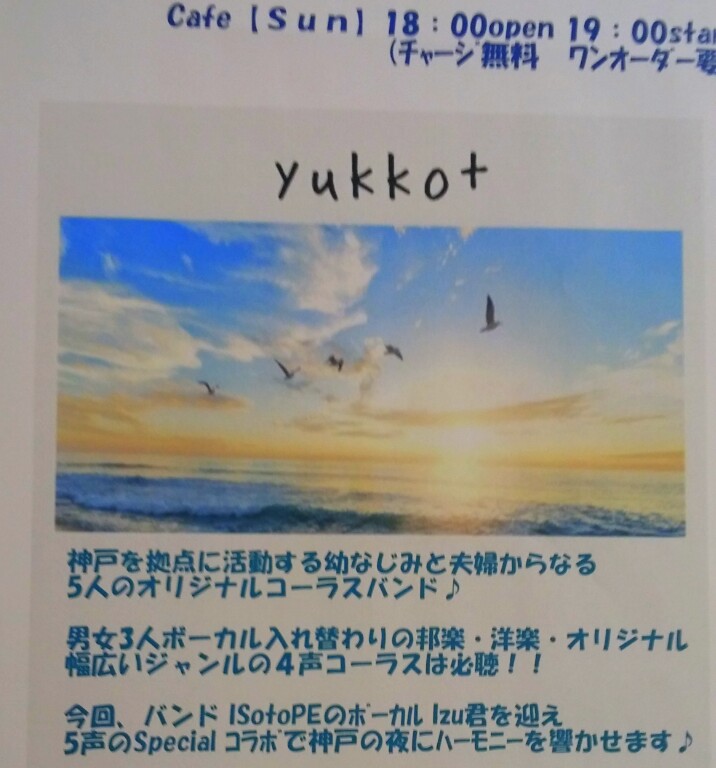 Cafe【Sun】18：00open 19：00star
(ﾁｬｰｼﾞ無料　ワンオーダー要
yukko+
神戸を拠点に活動する幼なじみと夫婦からなる
5人のオリジナルコーラスバンド♪
男女3人ボーカル入れ替わりの邦楽・洋楽・オリジナル
幅広いジャンルの４声コーラスは必聴！！
今回、バンド ISotoPEのﾎﾞｰｶﾙ Izu君を迎え
5声のSpecial ｺﾗﾎﾞで神戸の夜にﾊｰﾓﾆｰを響かせます♪